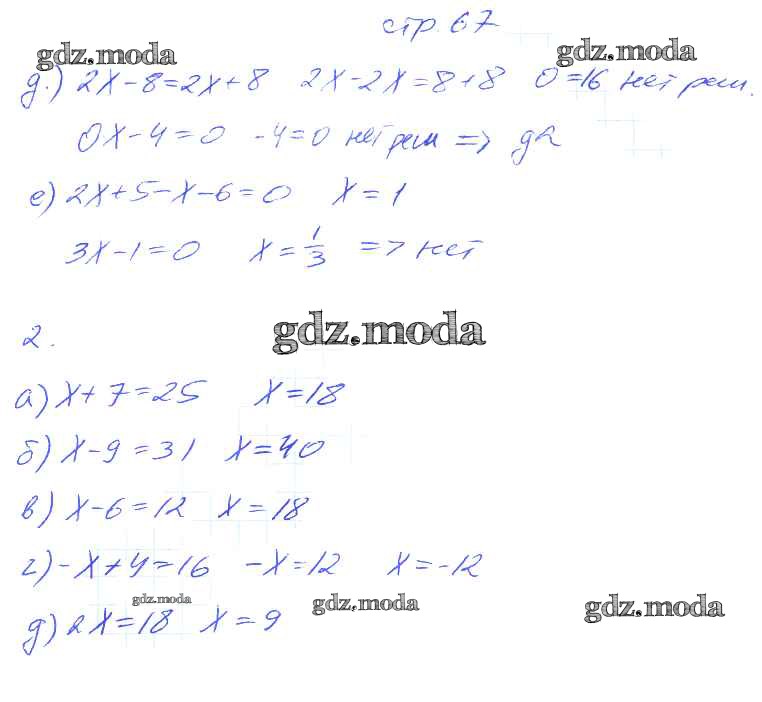 стр. 67
gdz.moda gdz.moda
д.) 2x-8=2x+8 2x-2x=8+8 0=16 нет реш.
0x-4=0 -4=0 нет реш => да
е) 2x+5-x-6=0 x=1
3x-1=0 x=1/3 => нет
2. gdz.moda
а) x+7=25 x=18
б) x-9=31 x=40
в) x-6=12 x=18
г) -x+4=16 -x=12 x=-12
gdz.moda gdz.moda gdz.moda
д) 2x=18 x=9